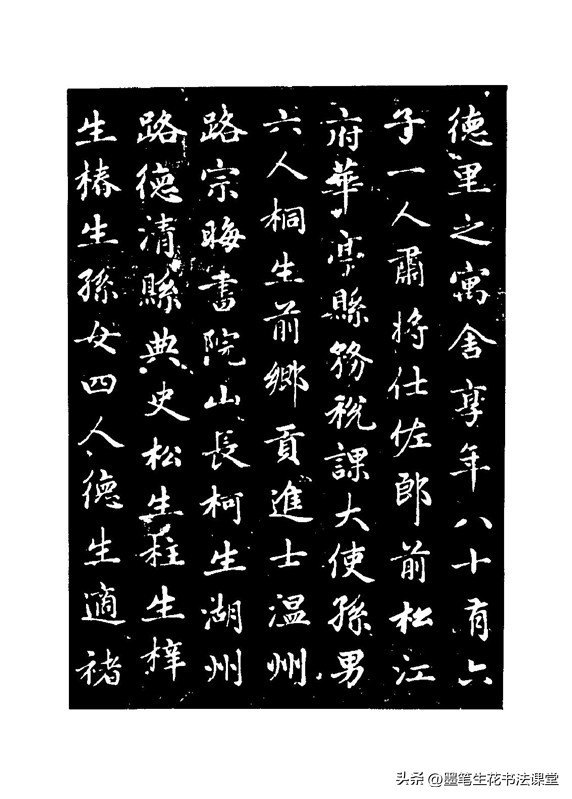 德里之寓舍享年八十有六
子一人肅将仕佐郎前松江
府華亭縣務稅課大使孫男
六人桐生前鄉貢進士温州
路宗晦書院山長柯生湖州
路德清縣典史松生柱生梓
生椿生孫女四人德生適褚
头条@墨笔生花书法课堂